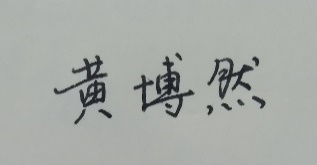 黄博然